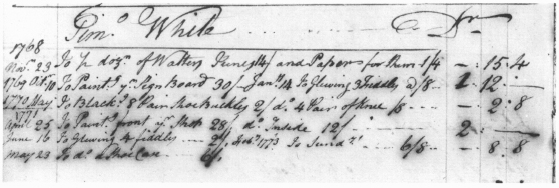 Simº White Dr
1768
Novr 23 To ½ dozn of Walters Tunes 14/ and Paper for Rum 1/4 - 15.4
1769 Octr 10 To Paintg yr Sign Board 30/ Janr 14 To Glewing 3 Fiddles 2/8 1.12.-
1770 May To Black'g 8 Pair Shoe Buckles 2/ do 4 Pair of Knee /8 - 2:8
1771
April 25 To Paintg front yr Shop 28/ do Inside 12/ 2.-
June 16 To Glewing 4 fiddles 2/ 1773 To Sundrs 6/8 - 8.8
May 23 To do a Shoe Case 6/